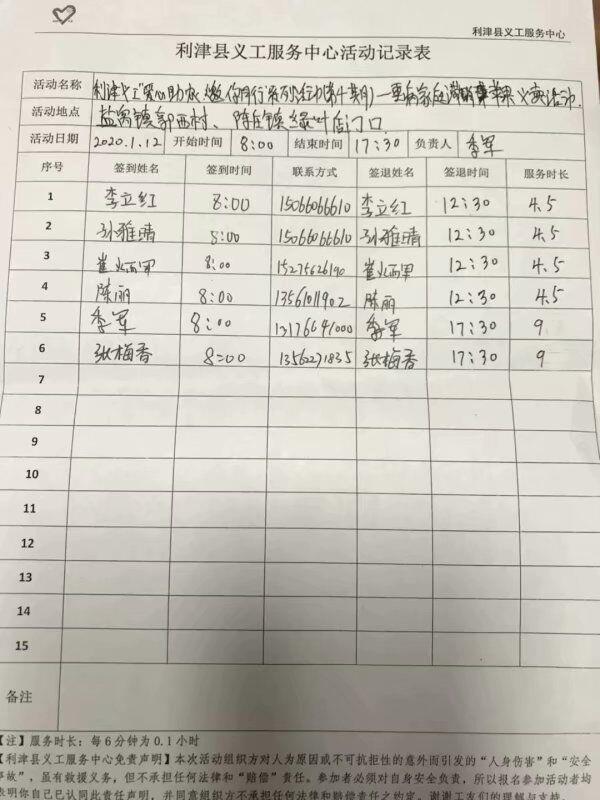 利津县义工服务中心
利津县义工服务中心活动记录表
活动名称 利津义工"爱心助农,邀你同行"系列活动(第十期)—重病家庭苹果义卖活动.
活动地点 盐窝镇郭西村、陈庄镇绿叶店门口.
活动日期 2020.1.12 开始时间 8:00 结束时间 17:30 负责人 季军
序号 签到姓名 签到时间 联系方式 签退姓名 签退时间 服务时长
1 李立红 8:00 15066066610 李立红 12:30 4.5
2 孙雅晴 8:00 15066066610 孙雅晴 12:30 4.5
3 8:00 15275626190 12:30 4.5
4 陈丽 8:00 13561011902 陈丽 12:30 4.5
5 季军 8:00 季军 17:30 9
6 张梅香 8:00 13562271835 张梅香 17:30 9
7
8
9
10
11
12
13
14
15
备注
【注】服务时长:每6分钟为0.1小时
【利津县义工服务中心免责声明】本次活动组织方对人为原因或不可抗拒性的意外而引发的“人身伤害”和“安全
事故”,虽有救援义务,但不承担任何法律和“赔偿”责任。参加者必须对自身安全负责,所以报名参加活动者均
表明你自己已认同此责任声明,并同意组织方不承担任何法律和赔偿责任之约定。谢谢工友们的理解与支持。